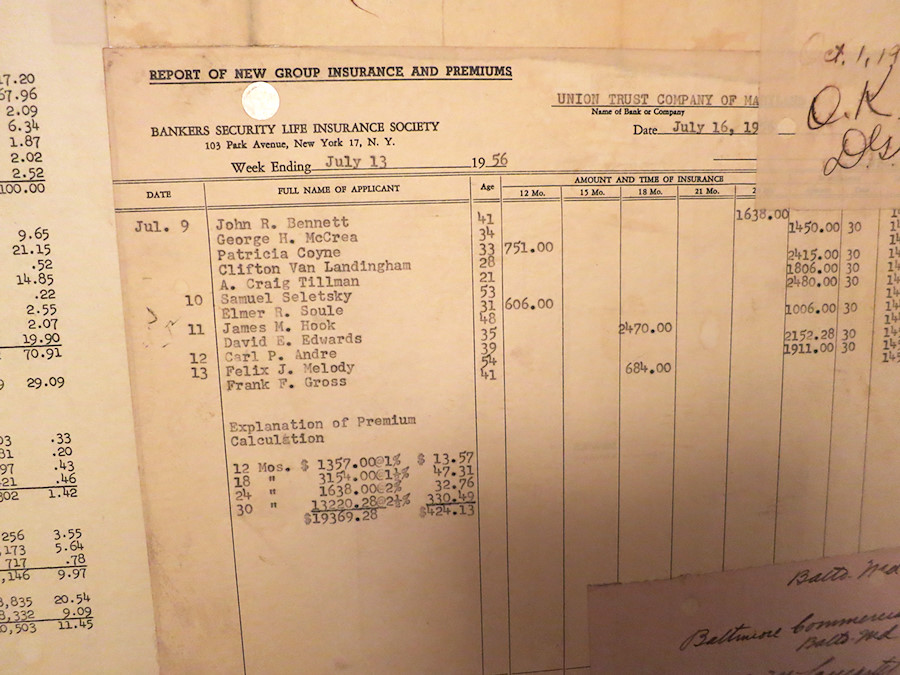 17.20
67.96
2.09
6.34
1.87
2.02
2.52
100.00
9.65
21.15
.52
14.85
.22
2.55
2.07
19.90
70.91
29.09
.33
.20
.43
.46
1.42
256 3.55
,173 5.64
717 .78
,146 9.97
8,835 20.54
8,332 9.09
0,503 11.45
REPORT OF NEW GROUP INSURANCE AND PREMIUMS
UNION TRUST COMPANY OF MA
Name of Bank or Company
BANKERS SECURITY LIFE INSURANCE SOCIETY
103 Park Avenue, New York 17, N. Y.
Date July 16, 19
Week Ending July 13 1956
DATE FULL NAME OF APPLICANT Age AMOUNT AND TIME OF INSURANCE
12 Mo. 15 Mo. 18 Mo. 21 Mo. 2
Jul. 9 John R. Bennett 41 1638.00
George H. McCrea 34 1450.00 30
Patricia Coyne 33 751.00
Clifton Van Landingham 28 2415.00 30
A. Craig Tillman 21 1806.00 30
10 Samuel Seletsky 53 2480.00 30
Elmer R. Soule 31 606.00
11 James M. Hook 48 1006.00 30
David E. Edwards 35 2470.00
12 Carl P. Andre 39 2152.28 30
13 Felix J. Melody 54 1911.00 30
Frank F. Gross 41 684.00
Explanation of Premium
Calculation
12 Mos. $ 1357.00@1% $ 13.57
18 " 3154.00@1½% 47.31
24 " 1638.00@2% 32.76
30 " 13220.28@2½% 330.49
$19369.28 $424.13
Oct. 1, 19
O.K.
Balto. Md
Baltimore Commercial
Balto. Md